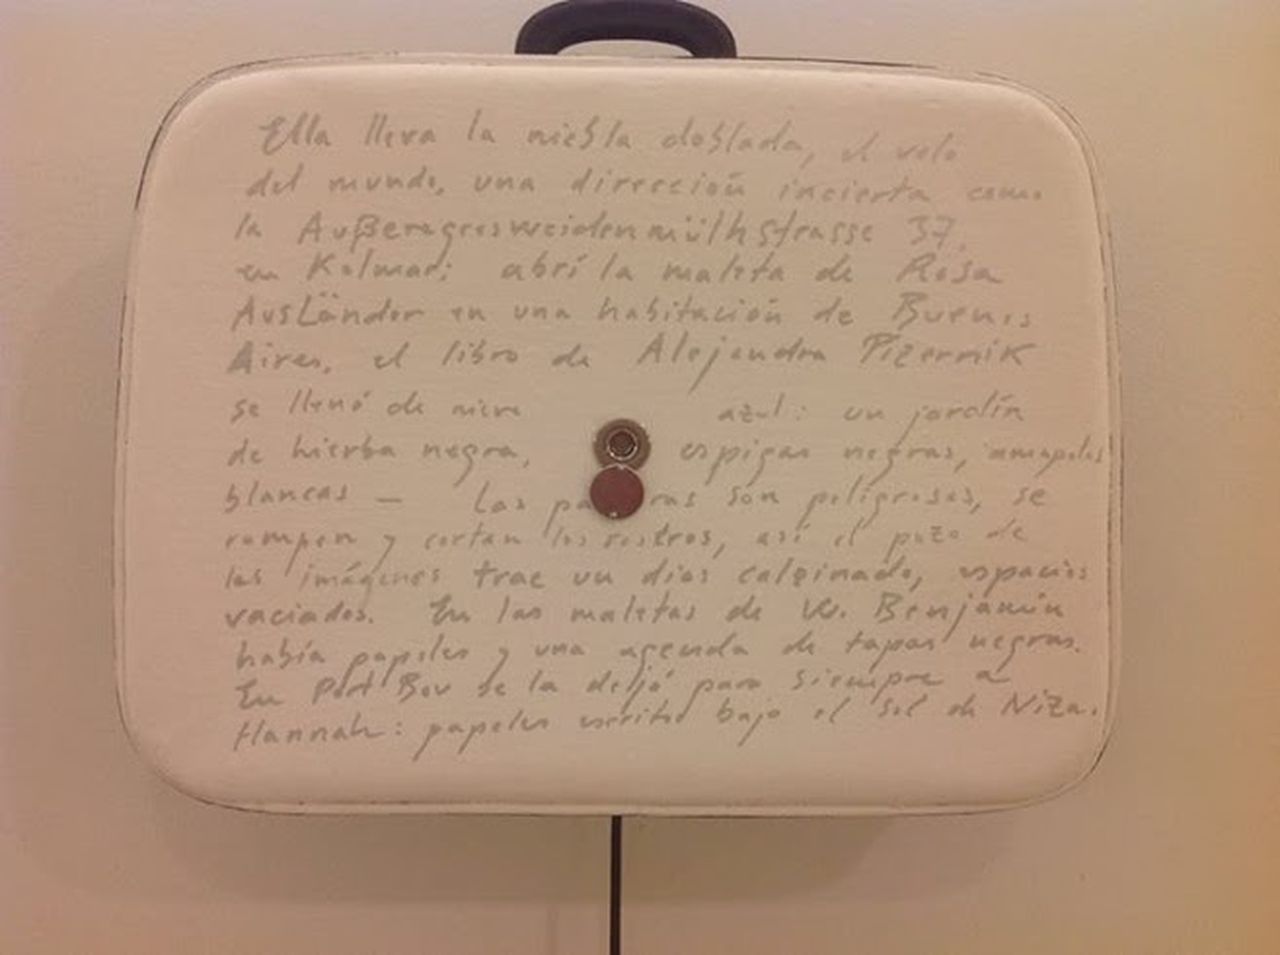 Ella lleva la niebla doblada, el velo
del mundo, una dirección incierta como
la Außeragrosweidenmülhstrasse 37,
en Kolmar; abrí la maleta de Rosa
AusLänder en una habitación de Buenos
Aires, el libro de Alejandra Pizarnik
se llenó de nieve azul: un jardín
de hierba negra, espigas negras, amapolas
blancas — Las pa ras son peligrosas, se
rompen y cortan los rostros, así el pozo de
las imágenes trae un dios calcinado, espacios
vaciados. En las maletas de W. Benjamín
había papeles y una agenda de tapas negras.
En Port Bou se la dejó para siempre a
Hannah: papeles escritos bajo el sol de Niza.